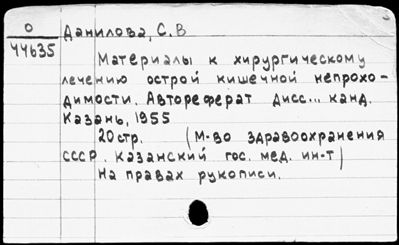 О
44635
Данилова, С.В
Материалы к хирургическому
лечению острой кишечной непрохо-
димости. Автореферат дисс... канд.
Казань, 1955
20 стр. (М-во здравоохранения
СССР. Казанский гос. мед. ин-т)
На правах рукописи.